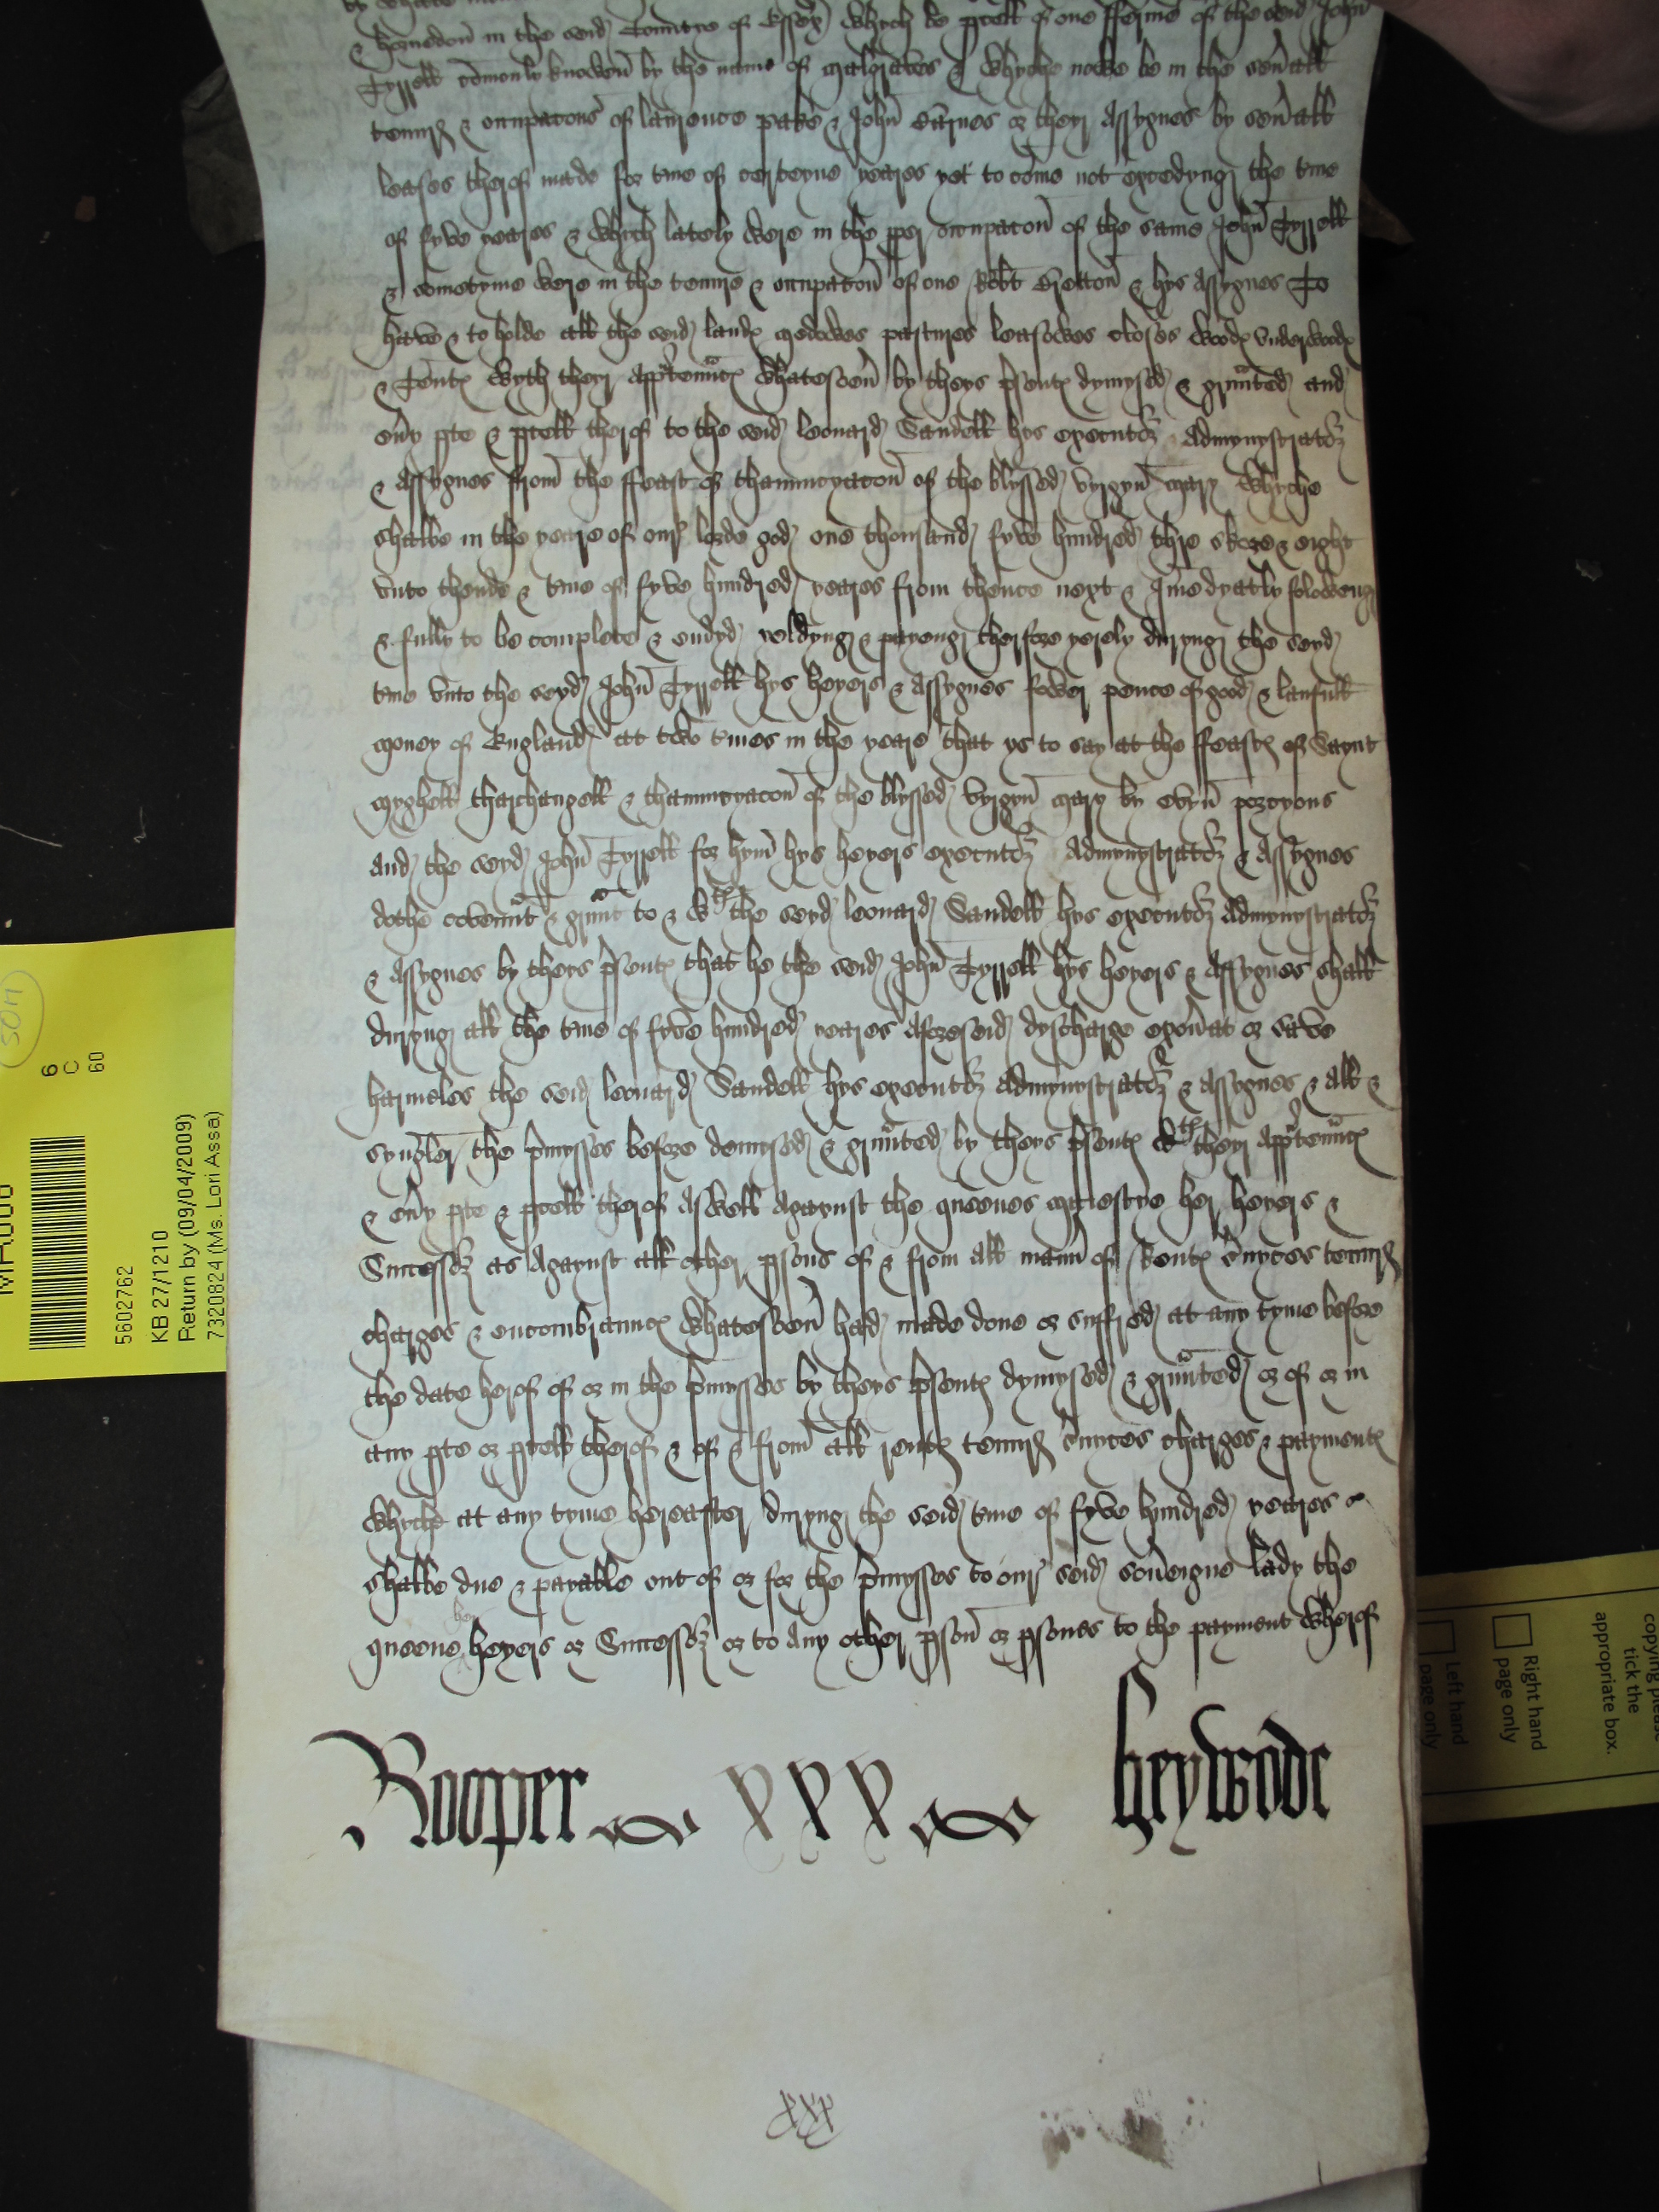 & hornedon in the seid Countie of Essex which be pcell of one fferme of the seid John
Tyrrell comonly knowen by the name of & whyche nowe be in the sevall
tenurs & occupacons of laurence pake & John Barnes or they Assygnes by sevall
leases therof made for tme of certeyne yeares yet to come not excedyng the tme
of fyve yeares & which lately were in the pper occupacon of the same John Tyrrell
& sometyme were in the tenure & occupacon of one Robt & hys Assygnes To
have & to holde all the seid landes medowes pastures leasowes closes woodes underwoodes
& Tentes wyth theyr Apprtennces whatesoevr by theys psentes dymysed & grunted and
evry pte & pcell therof to the seid leonard Sandell hys executors Admynystrators
& Assygnes from the ffeast of thannuncyacon of the blyssed vyrgyn mary whyche
shalbe in the yeare of our lorde god one thousand fyve hundred thre skore & eight
unto thende & tme of fyve hundred yeares from thence next & Imedyatly foloweng
& fully to be complete & endyd yeldyng & payeng therfore yerely duryng the seyd
tme unto the seyd John Tyrrell hys heyers & Assygnes fower pence of good & laufull
money of England at two tmes in the yeare that ys to say at the ffeastes of Saynt
myghell tharchangell & thannuncyacon of the blyssed vyrgyn mary by evyn porcyons
and the seyd John Tyrrell for hym hys heyers executors Admynystrators & Assygnes
dothe covennt & grunt to & wth the seyd leonard Sandell hys executors Admynystrators
& Assygnes by theys psentes that he the seid John Tyrrell hys heyers & Assygnes shall
duryng all the tme of fyve hundred yeares Aforeseid dyscharge exonat or save
harmeles the seid leonard Sandell hys executors Admynystrators & Assygnes & all &
synguler the pmysses before demysed & grunted by theys psentes wth theyr Apprtennces
& evry pte & pcell therof Aswell Agaynst the queenes maiestye her heyers &
Successors as Agaynst all other psons of & from all mann of Rentes svyces tenurs
charges & encombraunces whatesoevr had made done or suffred at any tyme before
the date herof of or in the pmysses by theys psentes dymysed & grunted or of or in
any pte or pcell therof & of & from all rentes tenurs svyces charges & paymentes
whyche at any tyme hereafter duryng the seid tme of fyve hundred yeares
shalbe due & payable out of or for the pmysses to our seid soveigne lady the
queene her heyers or Successors or to Any other pson or psones to the payment wherof
Rooper xxx heywode
xxx
6
C
60
5602762
KB 27/1210
Return by (09/04/2009)
7320824 (Ms. Lori Assa)
copying please
tick the
appropriate box.
Right hand
page only
Left hand
page only